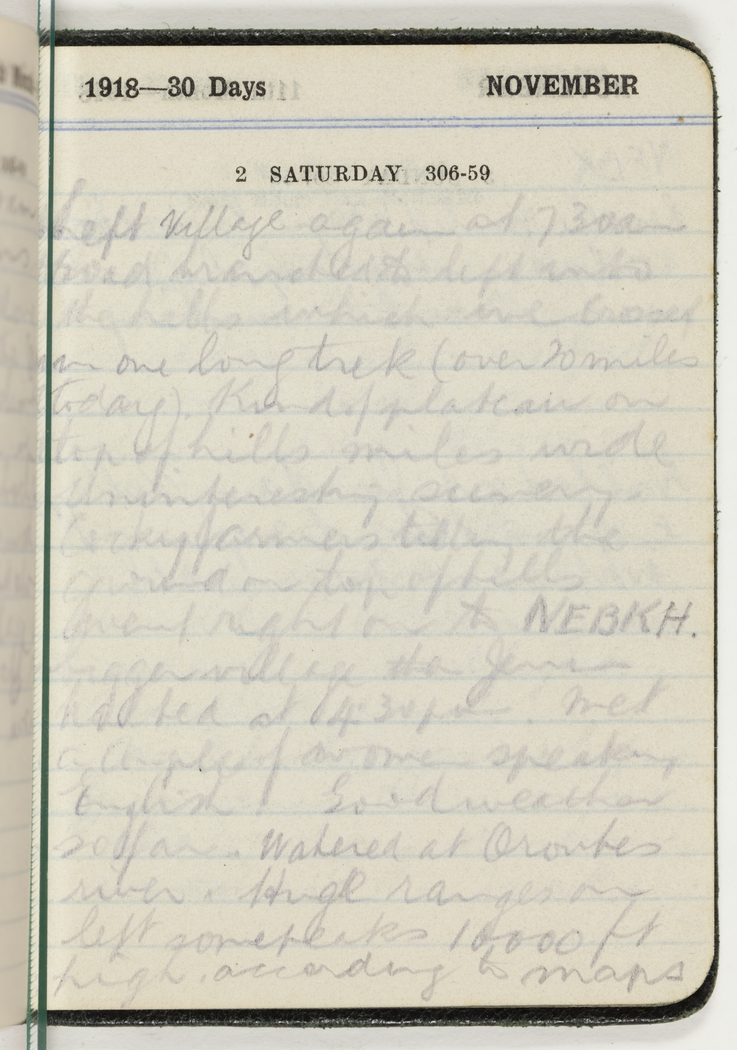 1918—30 Days NOVEMBER
2 SATURDAY 306-59
Left Village again at 730am
Road branched to left into
the hills which we crossed
in one long trek (over 20 miles
today). Kind of plateau on
top of hills miles wide
Uninteresting scenery.
farmers tilling the
ground on top of hills
Went right on to NEBKH.
bigger village than
halted at 4.30pm. Met
a couple of women speaking
English. Good weather
so far. Watered at Orontes
river. Huge ranges on
left some peaks 10,000 ft
high according to maps